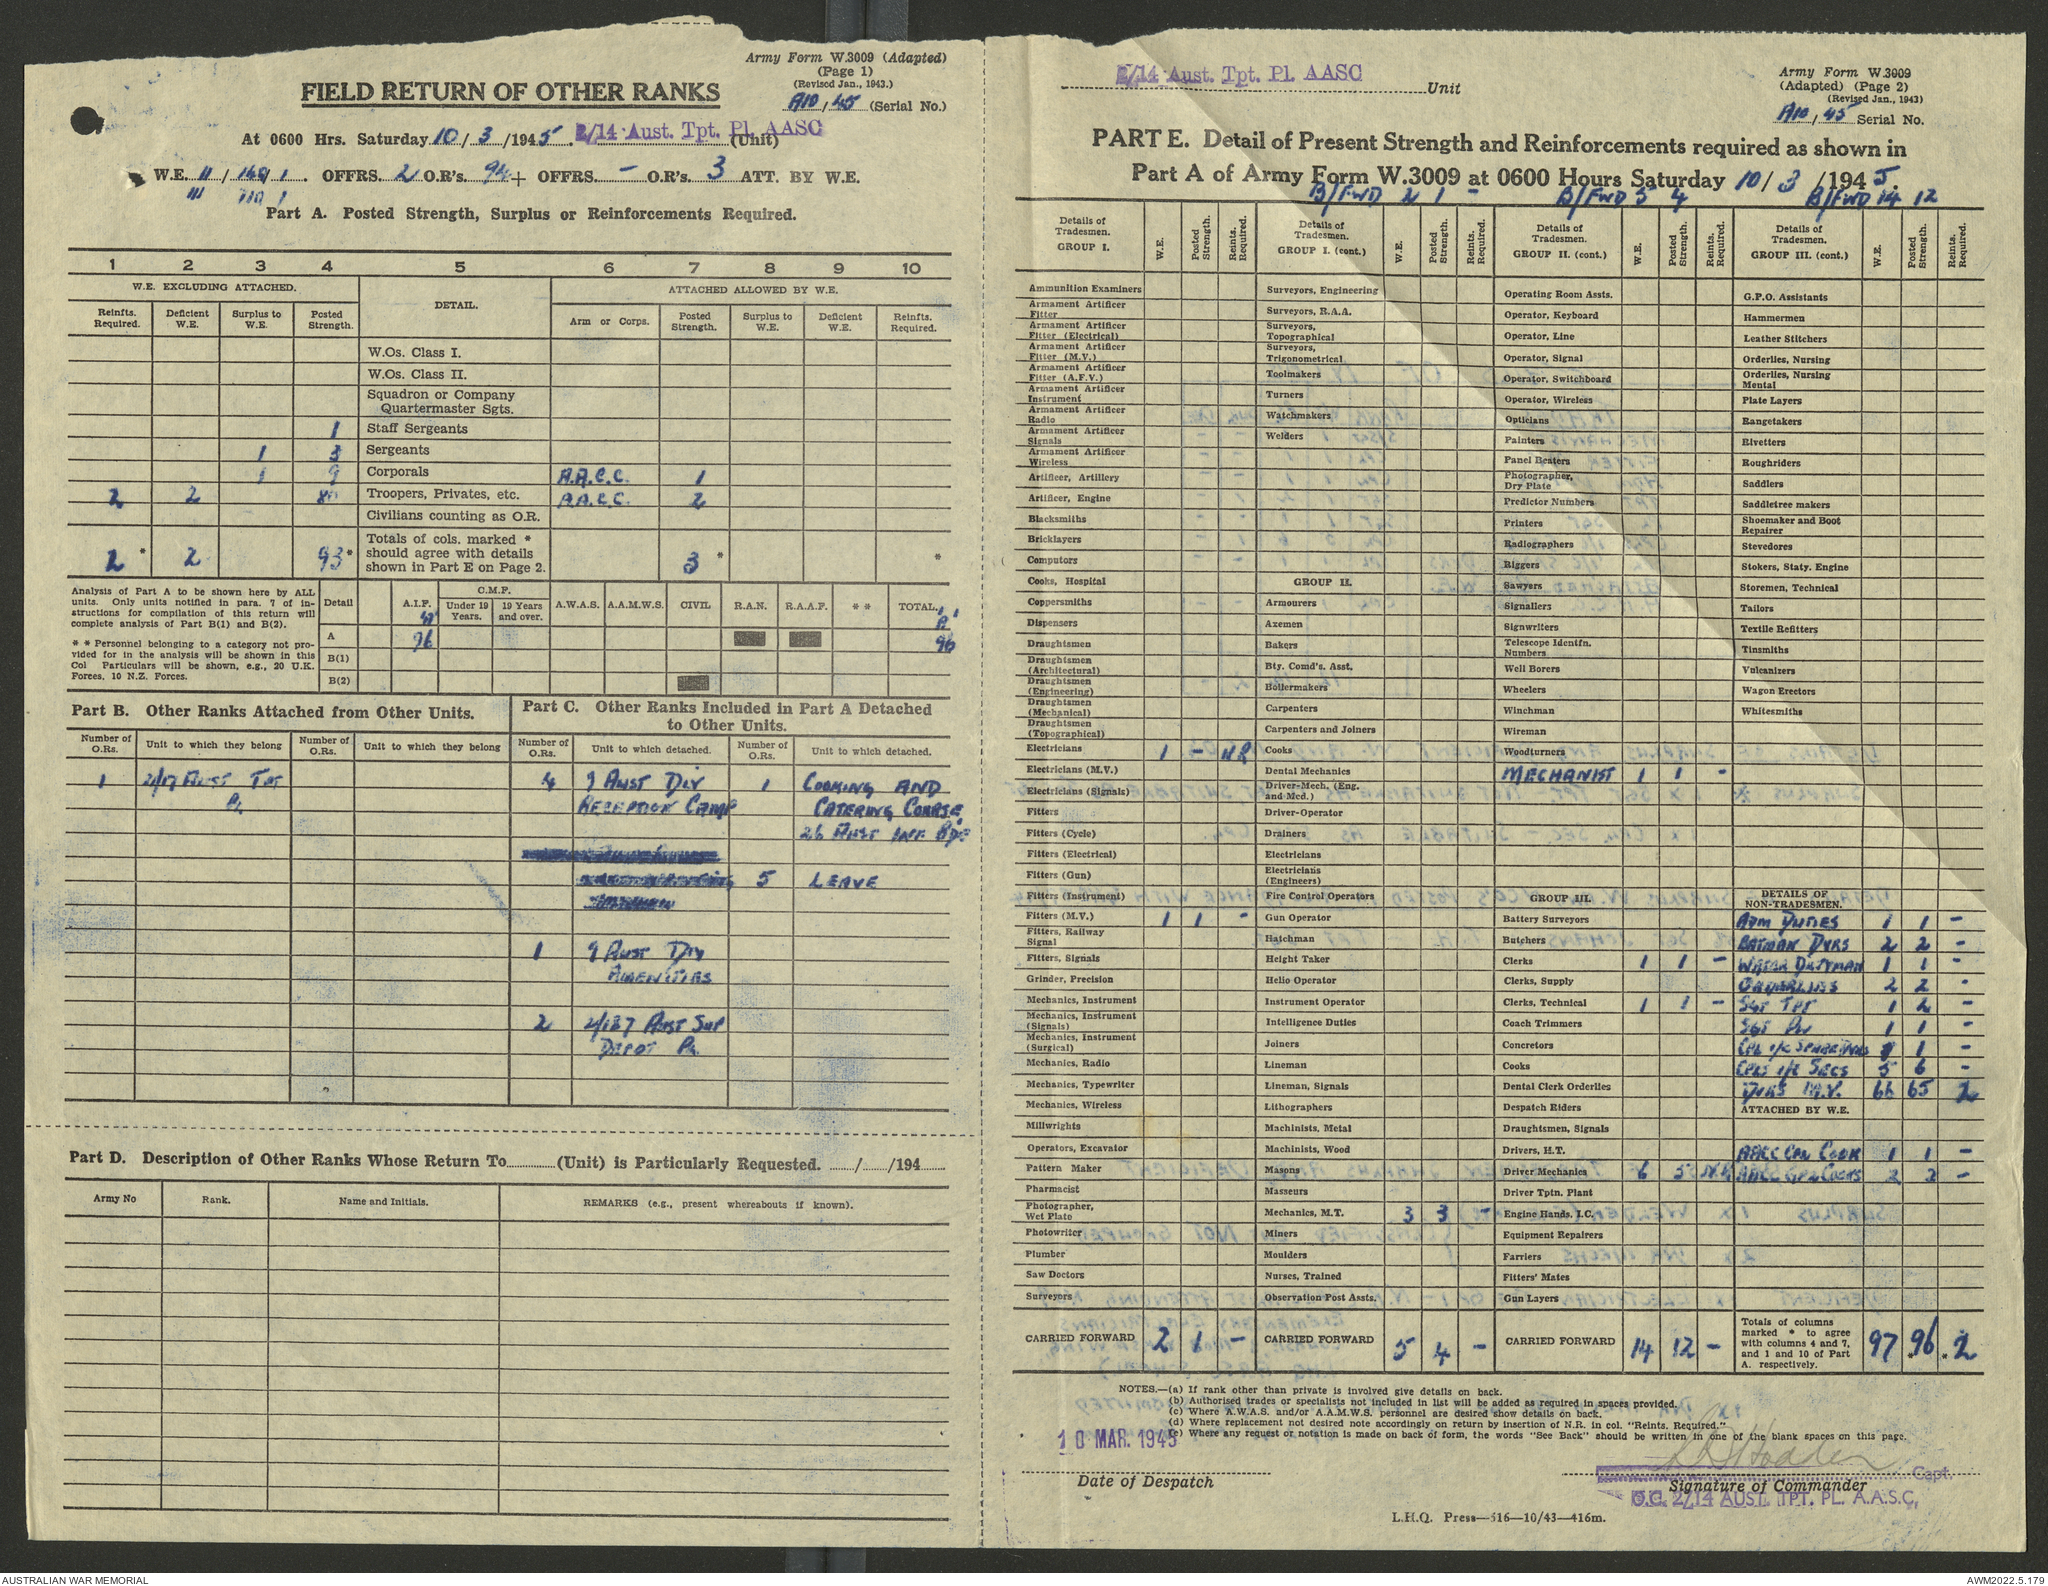 Army Form W.3009 (Adapted)
(Page 1)
(Revised Jan., 1943.)
A10/45 (Serial No.)
FIELD RETURN OF OTHER RANKS
At 0600 Hrs. Saturday 10/3/1945. 2/14 Aust. Tpt. Pl. AASC (Unit)
W.E. II/ /1. OFFRS. 2 O.R's. 94 + OFFRS. - O.R's. 3 ATT. BY W.E.
III 1
Part A. Posted Strength, Surplus or Reinforcements Required.
1 2 3 4 5 6 7 8 9 10
W.E. EXCLUDING ATTACHED. DETAIL. ATTACHED ALLOWED BY W.E.
Reinfts. Required. Deficient W.E. Surplus to W.E. Posted Strength. Arm or Corps. Posted Strength. Surplus to W.E. Deficient W.E. Reinfts. Required.
W.Os. Class I.
W.Os. Class II.
Squadron or Company
Quartermaster Sgts.
1 Staff Sergeants
1 3 Sergeants
1 9 Corporals A.A.C.C. 1
2 2 80 Troopers, Privates, etc. A.A.C.C. 2
Civilians counting as O.R.
2 * 2 93 * Totals of cols. marked * should agree with details shown in Part E on Page 2. 3 * *
Analysis of Part A to be shown here by ALL units. Only units notified in para. 7 of instructions for compilation of this return will complete analysis of Part B(1) and B(2).
* * Personnel belonging to a category not provided for in the analysis will be shown in this Col Particulars will be shown, e.g., 20 U.K. Forces, 10 N.Z. Forces.
Detail A.I.F. C.M.F. Under 19 Years. 19 Years and over. A.W.A.S. A.A.M.W.S. CIVIL R.A.N. R.A.A.F. * * TOTAL.
A 96 96
B(1)
B(2)
Part B. Other Ranks Attached from Other Units.
Number of O.Rs. Unit to which they belong Number of O.Rs. Unit to which they belong
1 2/17 AUST TPT
PL
Part C. Other Ranks Included in Part A Detached to Other Units.
Number of O.Rs. Unit to which detached. Number of O.Rs. Unit to which detached.
4 9 AUST DIV 1 COOKING AND
RECEPTION CAMP CATERING COURSE,
26 AUST INF BDE
5 LEAVE
1 9 AUST DIV
AMENITIES
2 2/187 AUST SUP
DEPOT PL
Part D. Description of Other Ranks Whose Return To (Unit) is Particularly Requested. / /194
Army No Rank. Name and Initials. REMARKS (e.g., present whereabouts if known).
2/14 Aust. Tpt. Pl. AASC Unit
Army Form W.3009
(Adapted) (Page 2)
(Revised Jan., 1943)
A10/45 Serial No.
PART E. Detail of Present Strength and Reinforcements required as shown in
Part A of Army Form W.3009 at 0600 Hours Saturday 10/3/1945.
B/FWD 2 1 - B/FWD 5 4 B/FWD 14 12
Details of Tradesmen. GROUP I. W.E. Posted Strength. Reints. Required.
Ammunition Examiners
Armament Artificer Fitter
Armament Artificer Fitter (Electrical)
Armament Artificer Fitter (M.V.)
Armament Artificer Fitter (A.F.V.)
Armament Artificer Instrument
Armament Artificer Radio
Armament Artificer Signals
Armament Artificer Wireless
Artificer, Artillery
Artificer, Engine
Blacksmiths
Bricklayers
Computors
Cooks, Hospital
Coppersmiths
Dispensers
Draughtsmen
Draughtsmen (Architectural)
Draughtsmen (Engineering)
Draughtsmen (Mechanical)
Draughtsmen (Topographical)
Electricians 1 - NR
Electricians (M.V.)
Electricians (Signals)
Fitters
Fitters (Cycle)
Fitters (Electrical)
Fitters (Gun)
Fitters (Instrument)
Fitters (M.V.) 1 1 -
Fitters, Railway Signal
Fitters, Signals
Grinder, Precision
Mechanics, Instrument
Mechanics, Instrument (Signals)
Mechanics, Instrument (Surgical)
Mechanics, Radio
Mechanics, Typewriter
Mechanics, Wireless
Millwrights
Operators, Excavator
Pattern Maker
Pharmacist
Photographer, Wet Plate
Photowriter
Plumber
Saw Doctors
Surveyors
CARRIED FORWARD 2 1 -
Details of Tradesmen. GROUP I. (cont.) W.E. Posted Strength. Reints. Required.
Surveyors, Engineering
Surveyors, R.A.A.
Surveyors, Topographical
Surveyors, Trigonometrical
Toolmakers
Turners
Watchmakers
Welders
GROUP II.
Armourers
Axemen
Bakers
Bty. Comd's. Asst.
Boilermakers
Carpenters
Carpenters and Joiners
Cooks
Dental Mechanics
Driver-Mech. (Eng. and Med.)
Driver-Operator
Drainers
Electricians
Electricians (Engineers)
Fire Control Operators
Gun Operator
Hatchman
Height Taker
Helio Operator
Instrument Operator
Intelligence Duties
Joiners
Lineman
Lineman, Signals
Lithographers
Machinists, Metal
Machinists, Wood
Masons
Masseurs
Mechanics, M.T. 3 3 -
Miners
Moulders
Nurses, Trained
Observation Post Assts.
CARRIED FORWARD 5 4 -
Details of Tradesmen. GROUP II. (cont.) W.E. Posted Strength. Reints. Required.
Operating Room Assts.
Operator, Keyboard
Operator, Line
Operator, Signal
Operator, Switchboard
Operator, Wireless
Opticians
Painters
Panel Beaters
Photographer, Dry Plate
Predictor Numbers
Printers
Radiographers
Riggers
Sawyers
Signallers
Signwriters
Telescope Identfn. Numbers
Well Borers
Wheelers
Winchman
Wireman
Woodturners
MECHANIST 1 1 -
GROUP III.
Battery Surveyors
Butchers
Clerks 1 1 -
Clerks, Supply
Clerks, Technical 1 1 -
Coach Trimmers
Concretors
Cooks
Dental Clerk Orderlies
Despatch Riders
Draughtsmen, Signals
Drivers, H.T.
Driver Mechanics 6 5 NR
Driver Tptn. Plant
Engine Hands, I.C.
Equipment Repairers
Farriers
Fitters' Mates
Gun Layers
CARRIED FORWARD 14 12 -
Details of Tradesmen. GROUP III. (cont.) W.E. Posted Strength. Reints. Required.
G.P.O. Assistants
Hammermen
Leather Stitchers
Orderlies, Nursing
Orderlies, Nursing Mental
Plate Layers
Rangetakers
Rivetters
Roughriders
Saddlers
Saddletree makers
Shoemaker and Boot Repairer
Stevedores
Stokers, Staty. Engine
Storemen, Technical
Tailors
Textile Refitters
Tinsmiths
Vulcanizers
Wagon Erectors
Whitesmiths
DETAILS OF NON-TRADESMEN.
ADM DUTIES 1 1 -
BATMAN DVRS 2 2 -
WATER DUTYMAN 1 1 -
ORDERLIES 2 2 -
SGT TPT 1 2 -
SGT PL 1 1 -
CPL I/C SPARE DVRS 1 1 -
CPLS I/C SECS 5 6 -
DVRS M.V. 66 65 2
ATTACHED BY W.E.
AACC CPL COOK 1 1 -
AACC GP COOKS 2 2 -
Totals of columns marked * to agree with columns 4 and 7, and 1 and 10 of Part A. respectively. 97 * 96 * 2
NOTES.—(a) If rank other than private is involved give details on back.
(b) Authorised trades or specialists not included in list will be added as required in spaces provided.
(c) Where A.W.A.S. and/or A.A.M.W.S. personnel are desired show details on back.
(d) Where replacement not desired note accordingly on return by insertion of N.R. in col. "Reints. Required."
(e) Where any request or notation is made on back of form, the words "See Back" should be written in one of the blank spaces on this page.
10 MAR. 1945
Date of Despatch
Capt.
Signature of Commander
O.C. 2/14 AUST. TPT. PL. A.A.S.C.
L.H.Q. Press—516—10/43—416m.
AUSTRALIAN WAR MEMORIAL
AWM2022.5.179